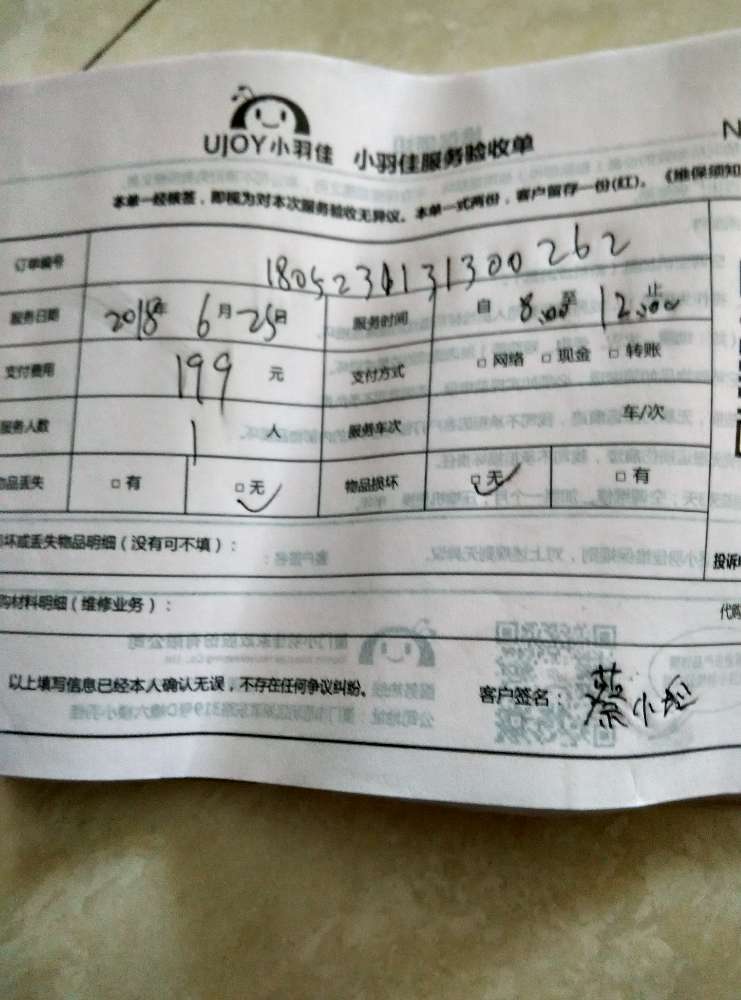 UJOY小羽佳 小羽佳服务验收单 N
本单一经核签，即视为对本次服务验收无异议。本单一式两份，客户留存一份(红)。《维保须知
订单编号 180523413 1300262
服务日期 2018年 6月25日 服务时间 自 8:00 至 12:00 止
支付费用 199 元 支付方式 □ 网络 □ 现金 □ 转账
服务人数 1 人 服务车次 车/次
物品丢失 □ 有 □ 无 物品损坏 □ 无 □ 有
坏或丢失物品明细（没有可不填）： 投诉
购材料明细（维修业务）： 代购
以上填写信息已经本人确认无误，不存在任何争议纠纷。 客户签名：蔡小